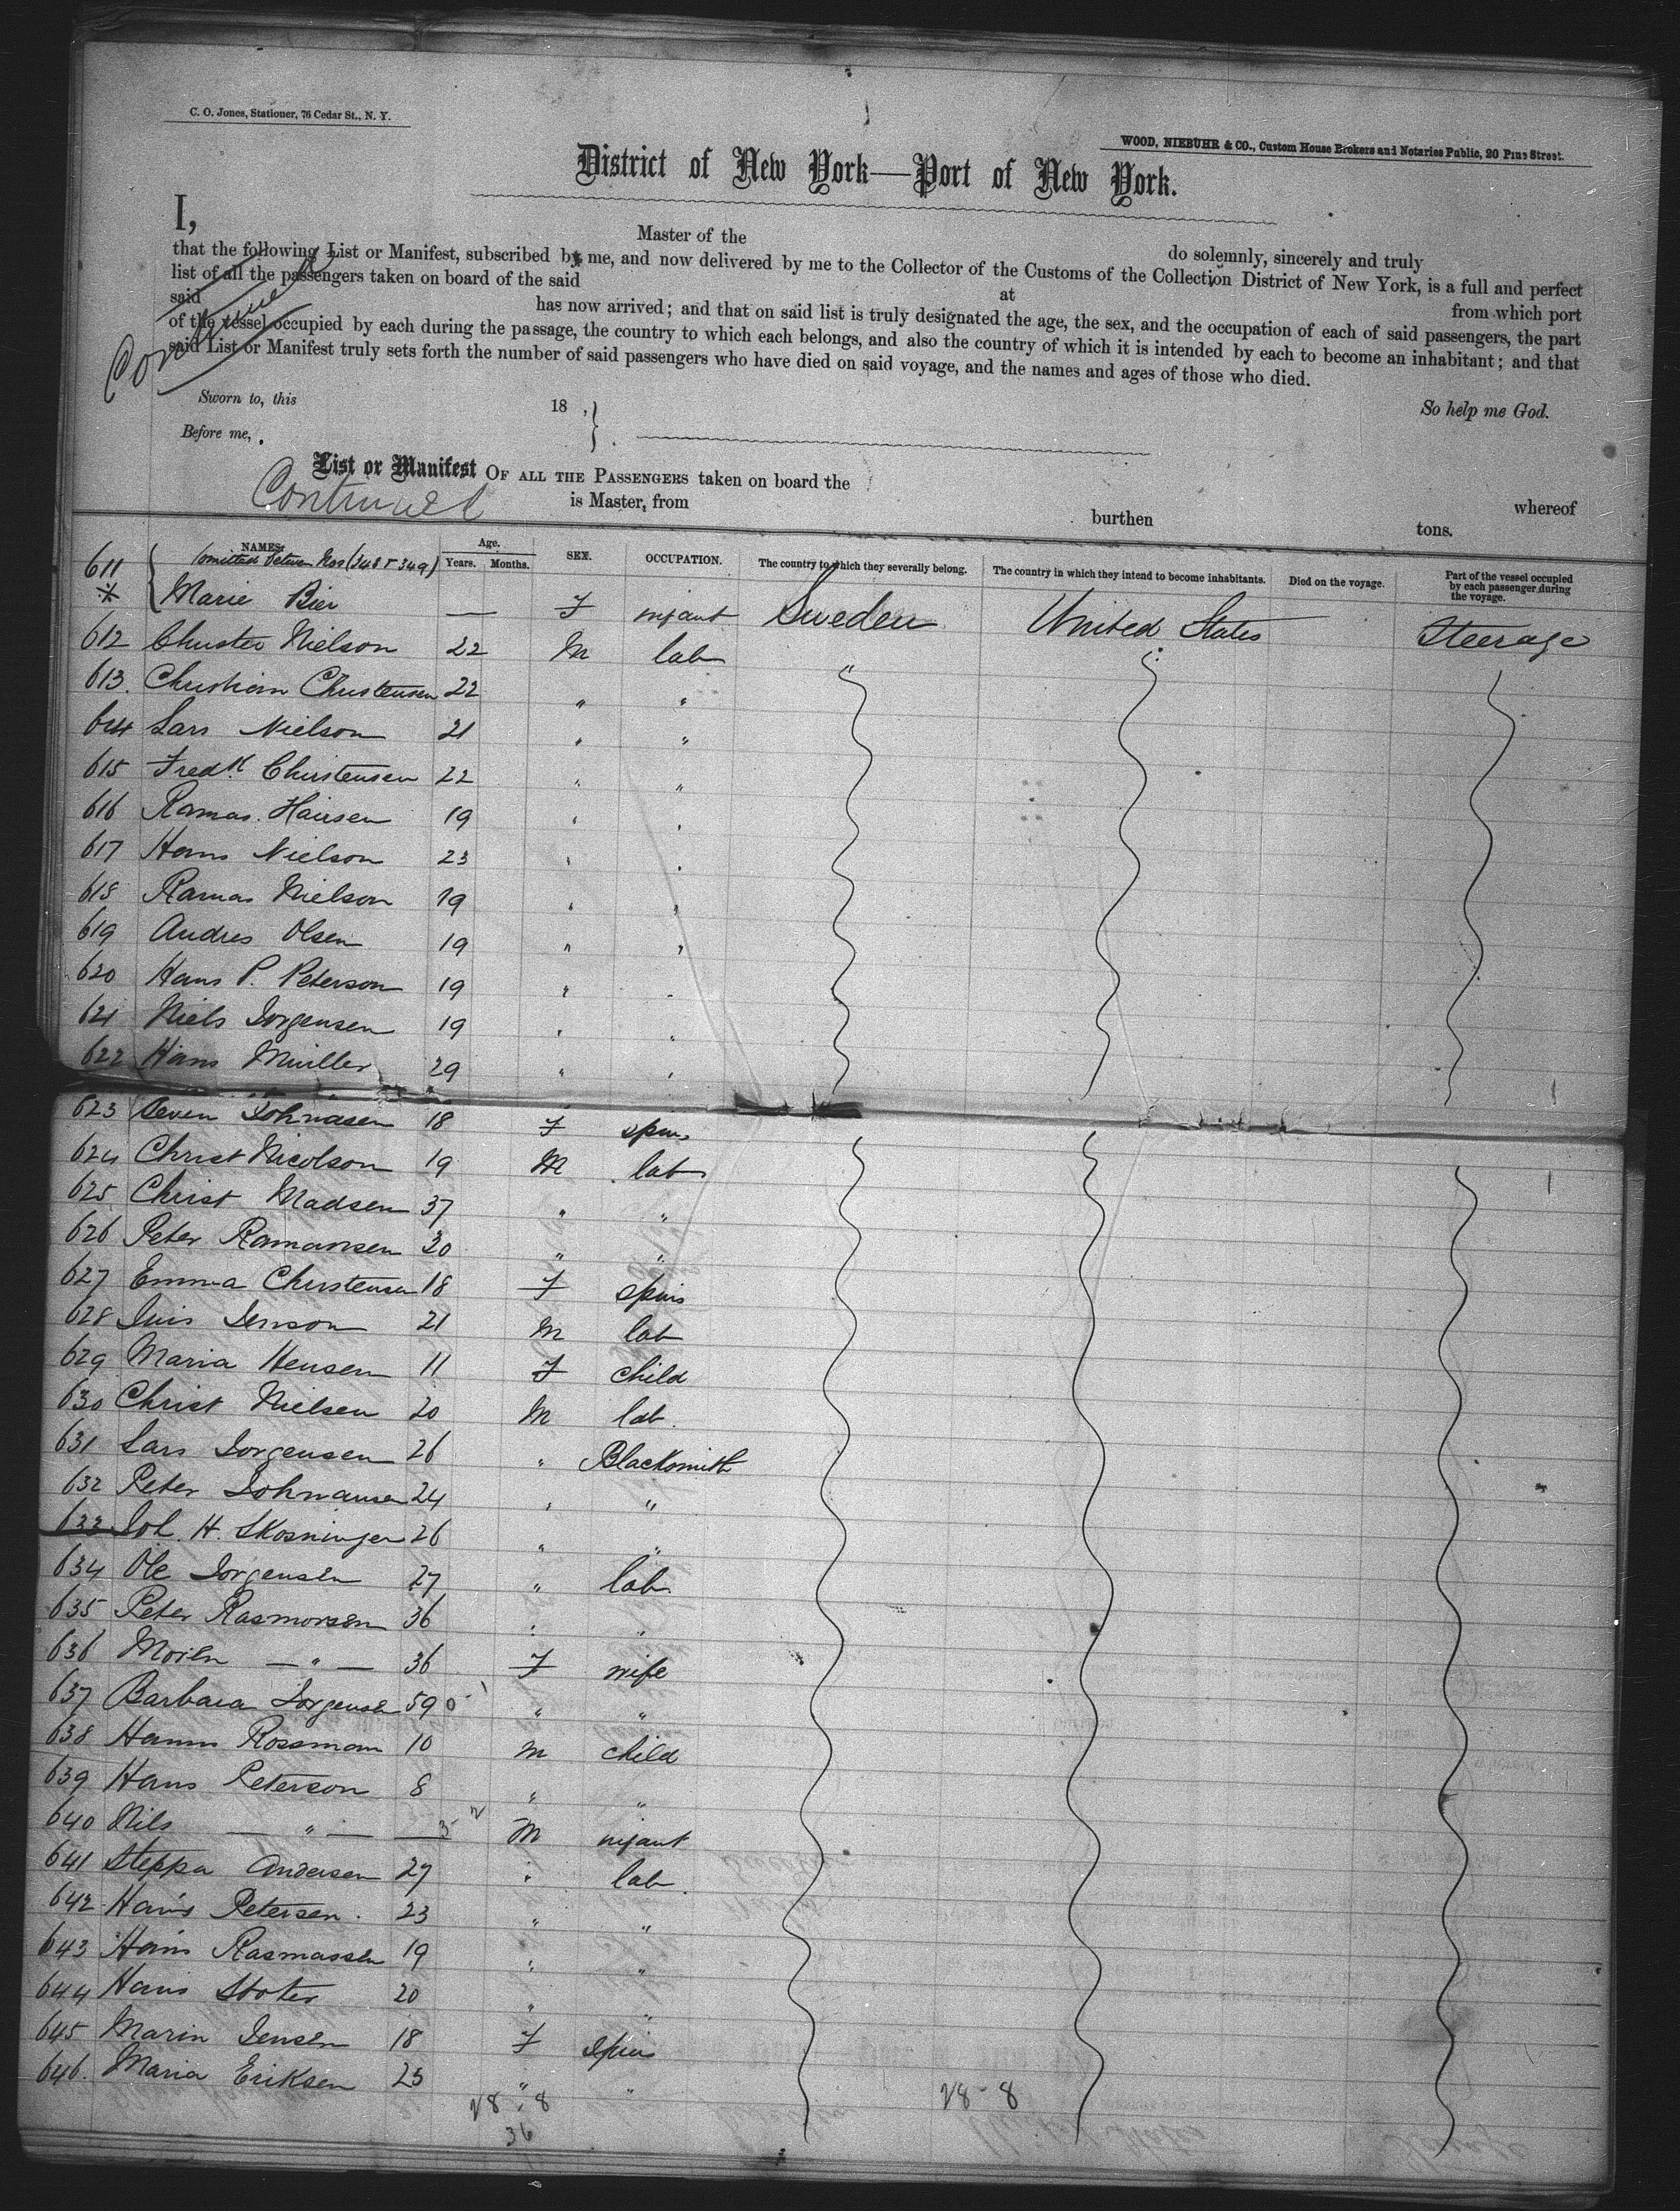 C. O. Jones, Stationer, 76 Cedar St., N. Y.
WOOD, NIEBUHR & CO., Custom House Brokers and Notaries Public, 20 Pine Street.
District of New York—Port of New York.
I, Master of the do solemnly, sincerely and truly
that the following List or Manifest, subscribed by me, and now delivered by me to the Collector of the Customs of the Collection District of New York, is a full and perfect
list of all the passengers taken on board of the said at from which port
said has now arrived; and that on said list is truly designated the age, the sex, and the occupation of each of said passengers, the part
of the vessel occupied by each during the passage, the country to which each belongs, and also the country of which it is intended by each to become an inhabitant; and that
said List or Manifest truly sets forth the number of said passengers who have died on said voyage, and the names and ages of those who died.
Continued
Sworn to, this 18 , So help me God.
Before me,
List or Manifest OF ALL THE PASSENGERS taken on board the whereof
Continued is Master, from burthen tons.
NAMES. Age. Years. Months. SEX. OCCUPATION. The country to which they severally belong. The country in which they intend to become inhabitants. Died on the voyage. Part of the vessel occupied by each passenger during the voyage.
611 (omitted between Nos 348 & 349)
Marie Bier — F infant Sweden United States Steerage
612 Christer Nielson 22 M lab "
613. Christian Christensen 22 " "
614 Lars Nielson 21 " "
615 Fredk Christensen 22 " "
616 Ramas. Hansen 19 " "
617 Hans Nielson 23 " "
618 Ramas Nielson 19 " "
619 Andres Olsen 19 " "
620 Hans P. Peterson 19 " "
621 Niels Jorgensen 19 " "
622 Hans Muller 29 " "
623 Seven Johnasen 18 F spins
624 Christ Nicolson 19 M lab
625 Christ Madsen 37 " "
626 Peter Ramansen 20 " "
627 Emma Christensen 18 F spins
628 Juis Jenson 21 M lab
629 Maria Hensen 11 F child
630 Christ Nielsen 20 M lab.
631 Lars Jorgensen 26 " Blacksmith
632 Peter Johnansen 24 " "
633 Joh. H. Skosninger 26 " "
634 Ole Jorgensen 27 " lab.
635 Peter Rasmorsen 36 " "
636 Moren — " — 36 F wife
637 Barbara Jorgensen 59 " "
638 Hanns Rossman 10 M child
639 Hans Peterson 8 " "
640 Nils — " — M infant
641 Steppa Andersen 27 " lab.
642 Hans Petersen. 23 " "
643 Hans Rasmassen 19 " "
644 Hans Stoter 20 " "
645 Marin Jensen 18 F spins
646. Maria Eriksen 25 " "
28 - 8 28 - 8
36